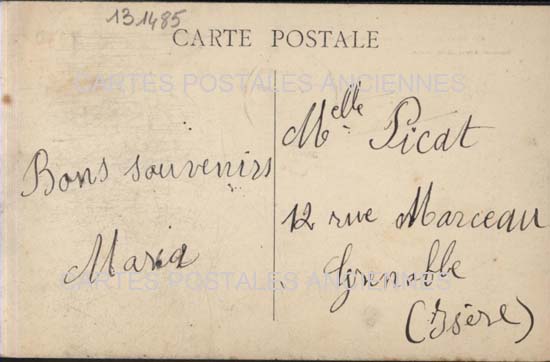 131485
CARTE POSTALE
CARTES POSTALES ANCIENNES
Bons souvenirs
Maria
Melle Picat
12 rue Marceau
Grenoble
(Isère)
CARTES POSTALES ANCIENNES